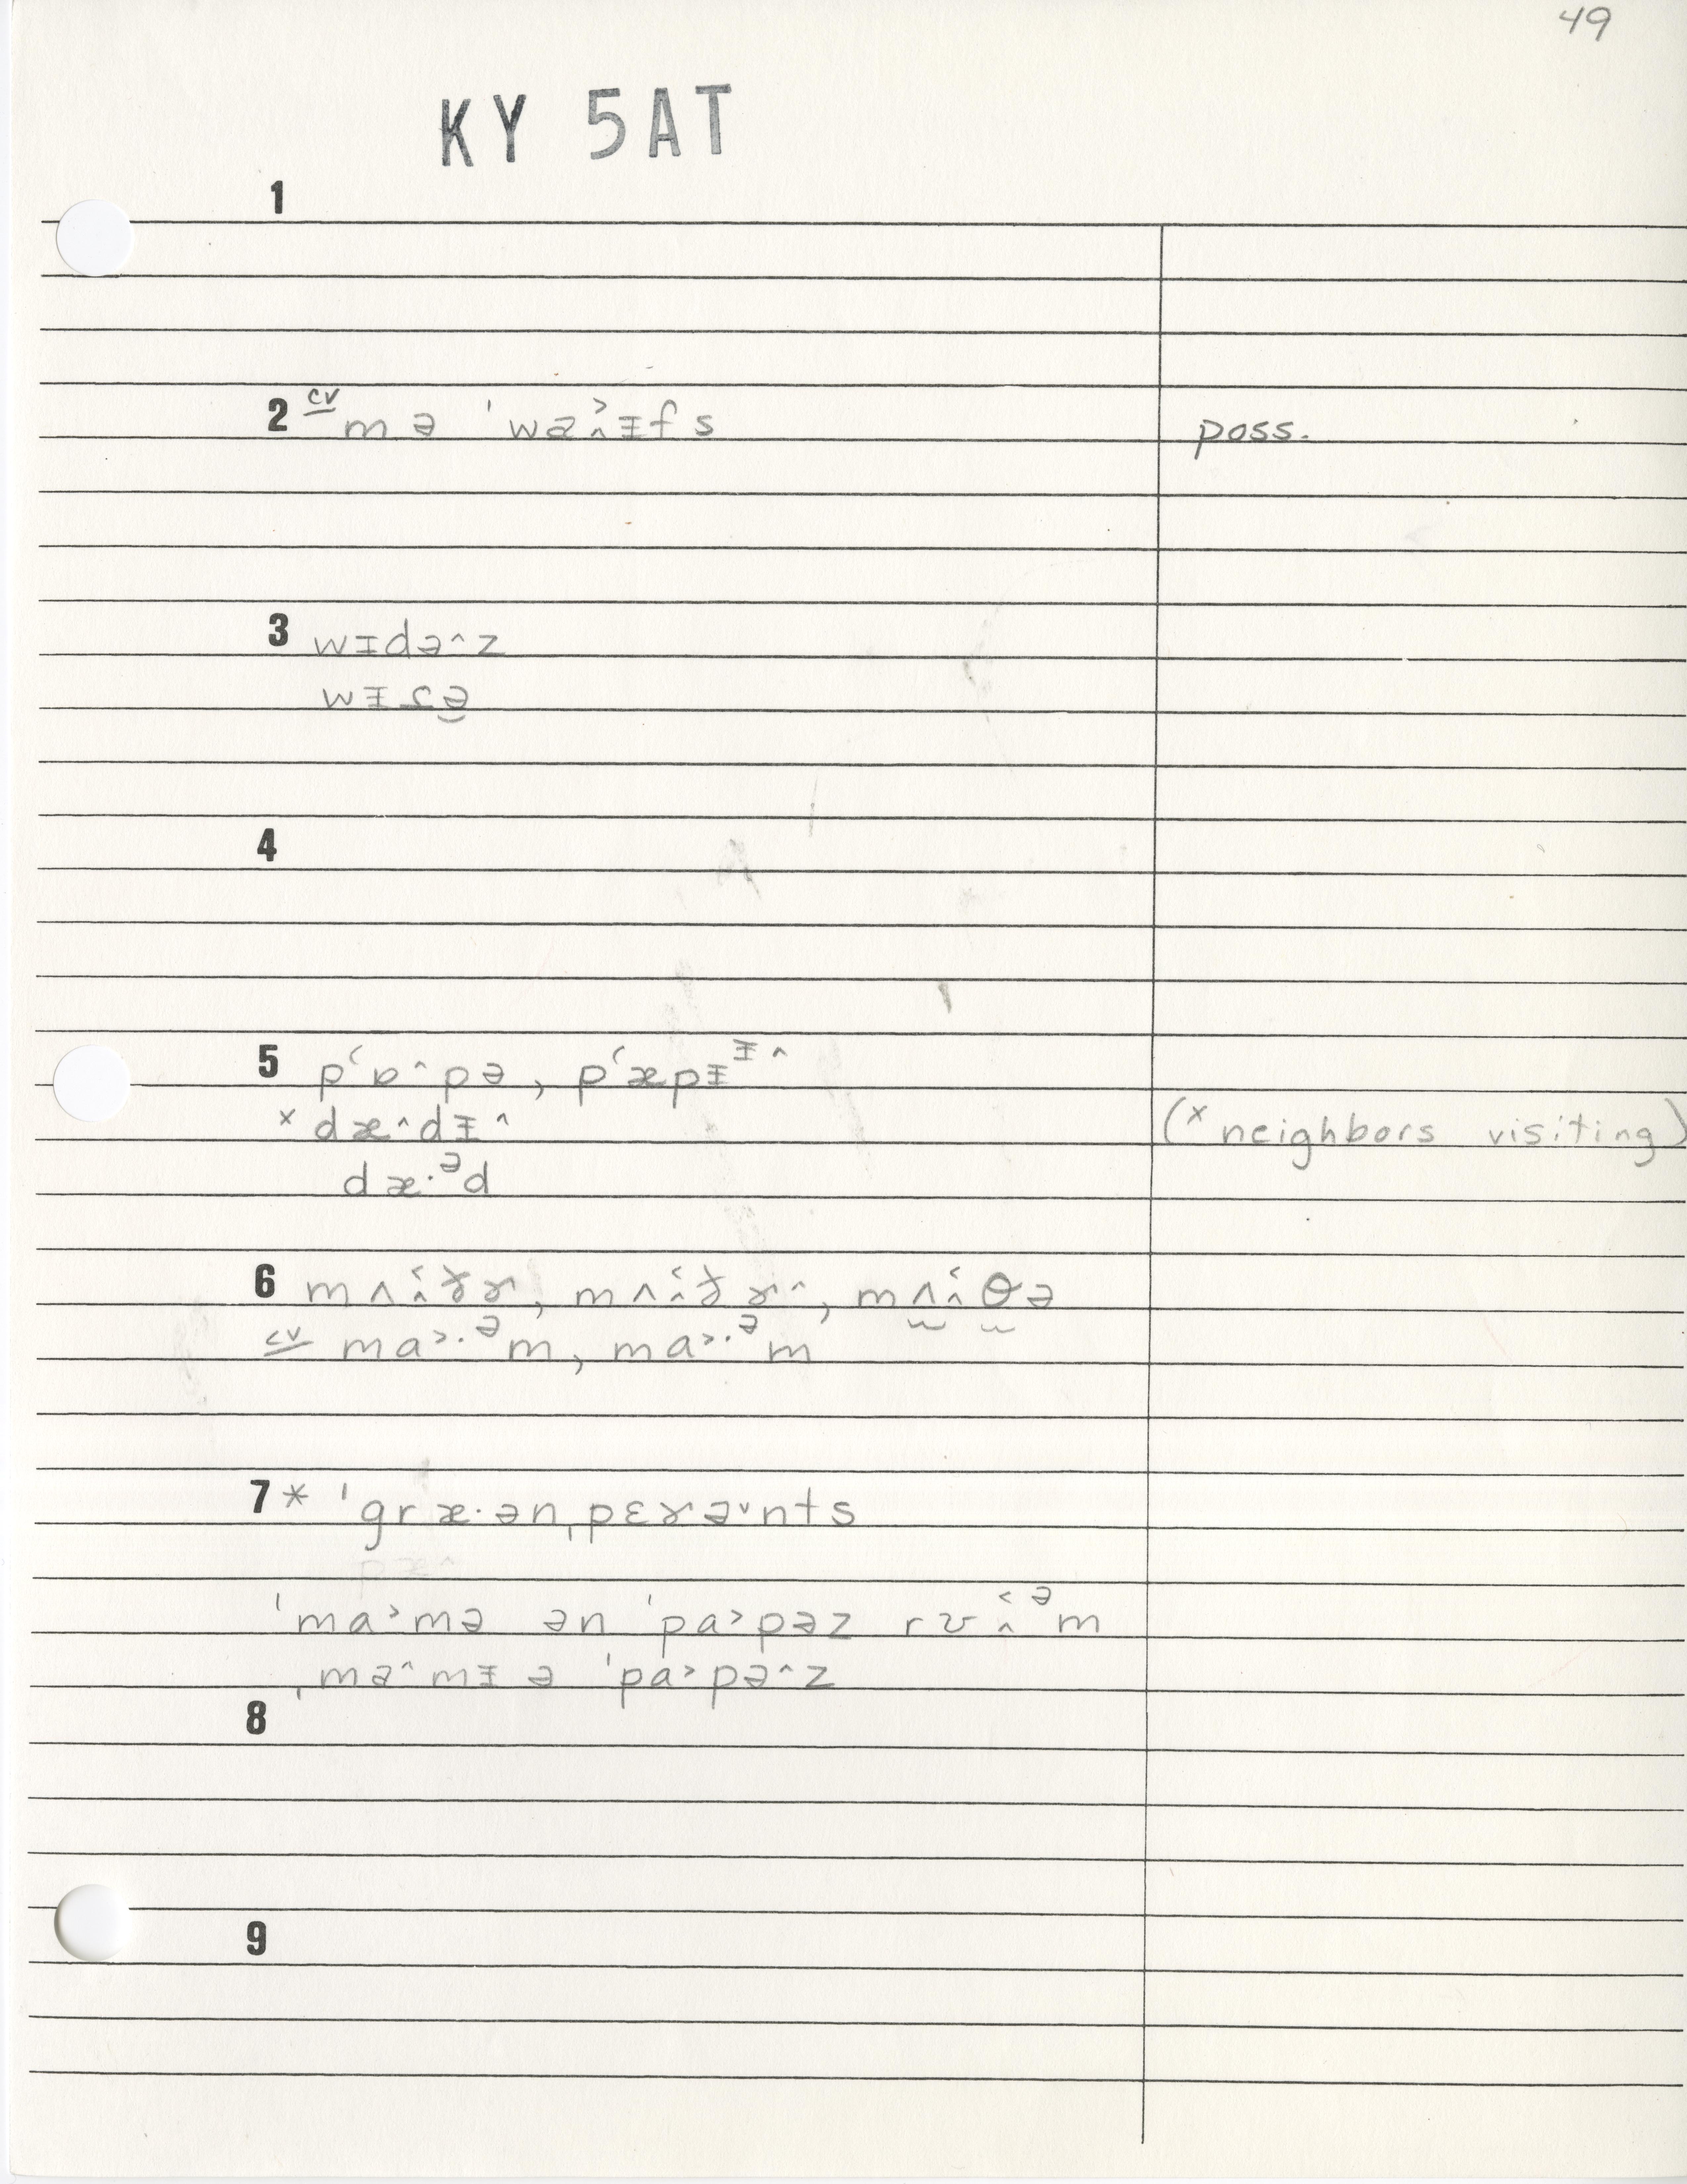 49
KY 5AT
1
2 cv mə ˈwa̵ɪ̵fs poss.
3 wɪdə^z
wɪ̵ɾə
4
5 pʻɒ^pə, pʻæpɪ̵ɪ̵^
x dæ^dɪ̵^ (x neighbors visiting)
dæ·ᵊd
6 mʌ̭˂ðɚ, mʌ̭˂ðɚ^, mʌ̭˂θə
cv ma˃·ᵊm, ma˃·ᵊm
7 * ˈgræ·ənˌpɛɚə˅nts
ˈma˃mə ən ˈpa˃pəz rʊ̭˂ᵊm
ˌmə^mɪ̵ ə ˈpa˃pə^z
8
9